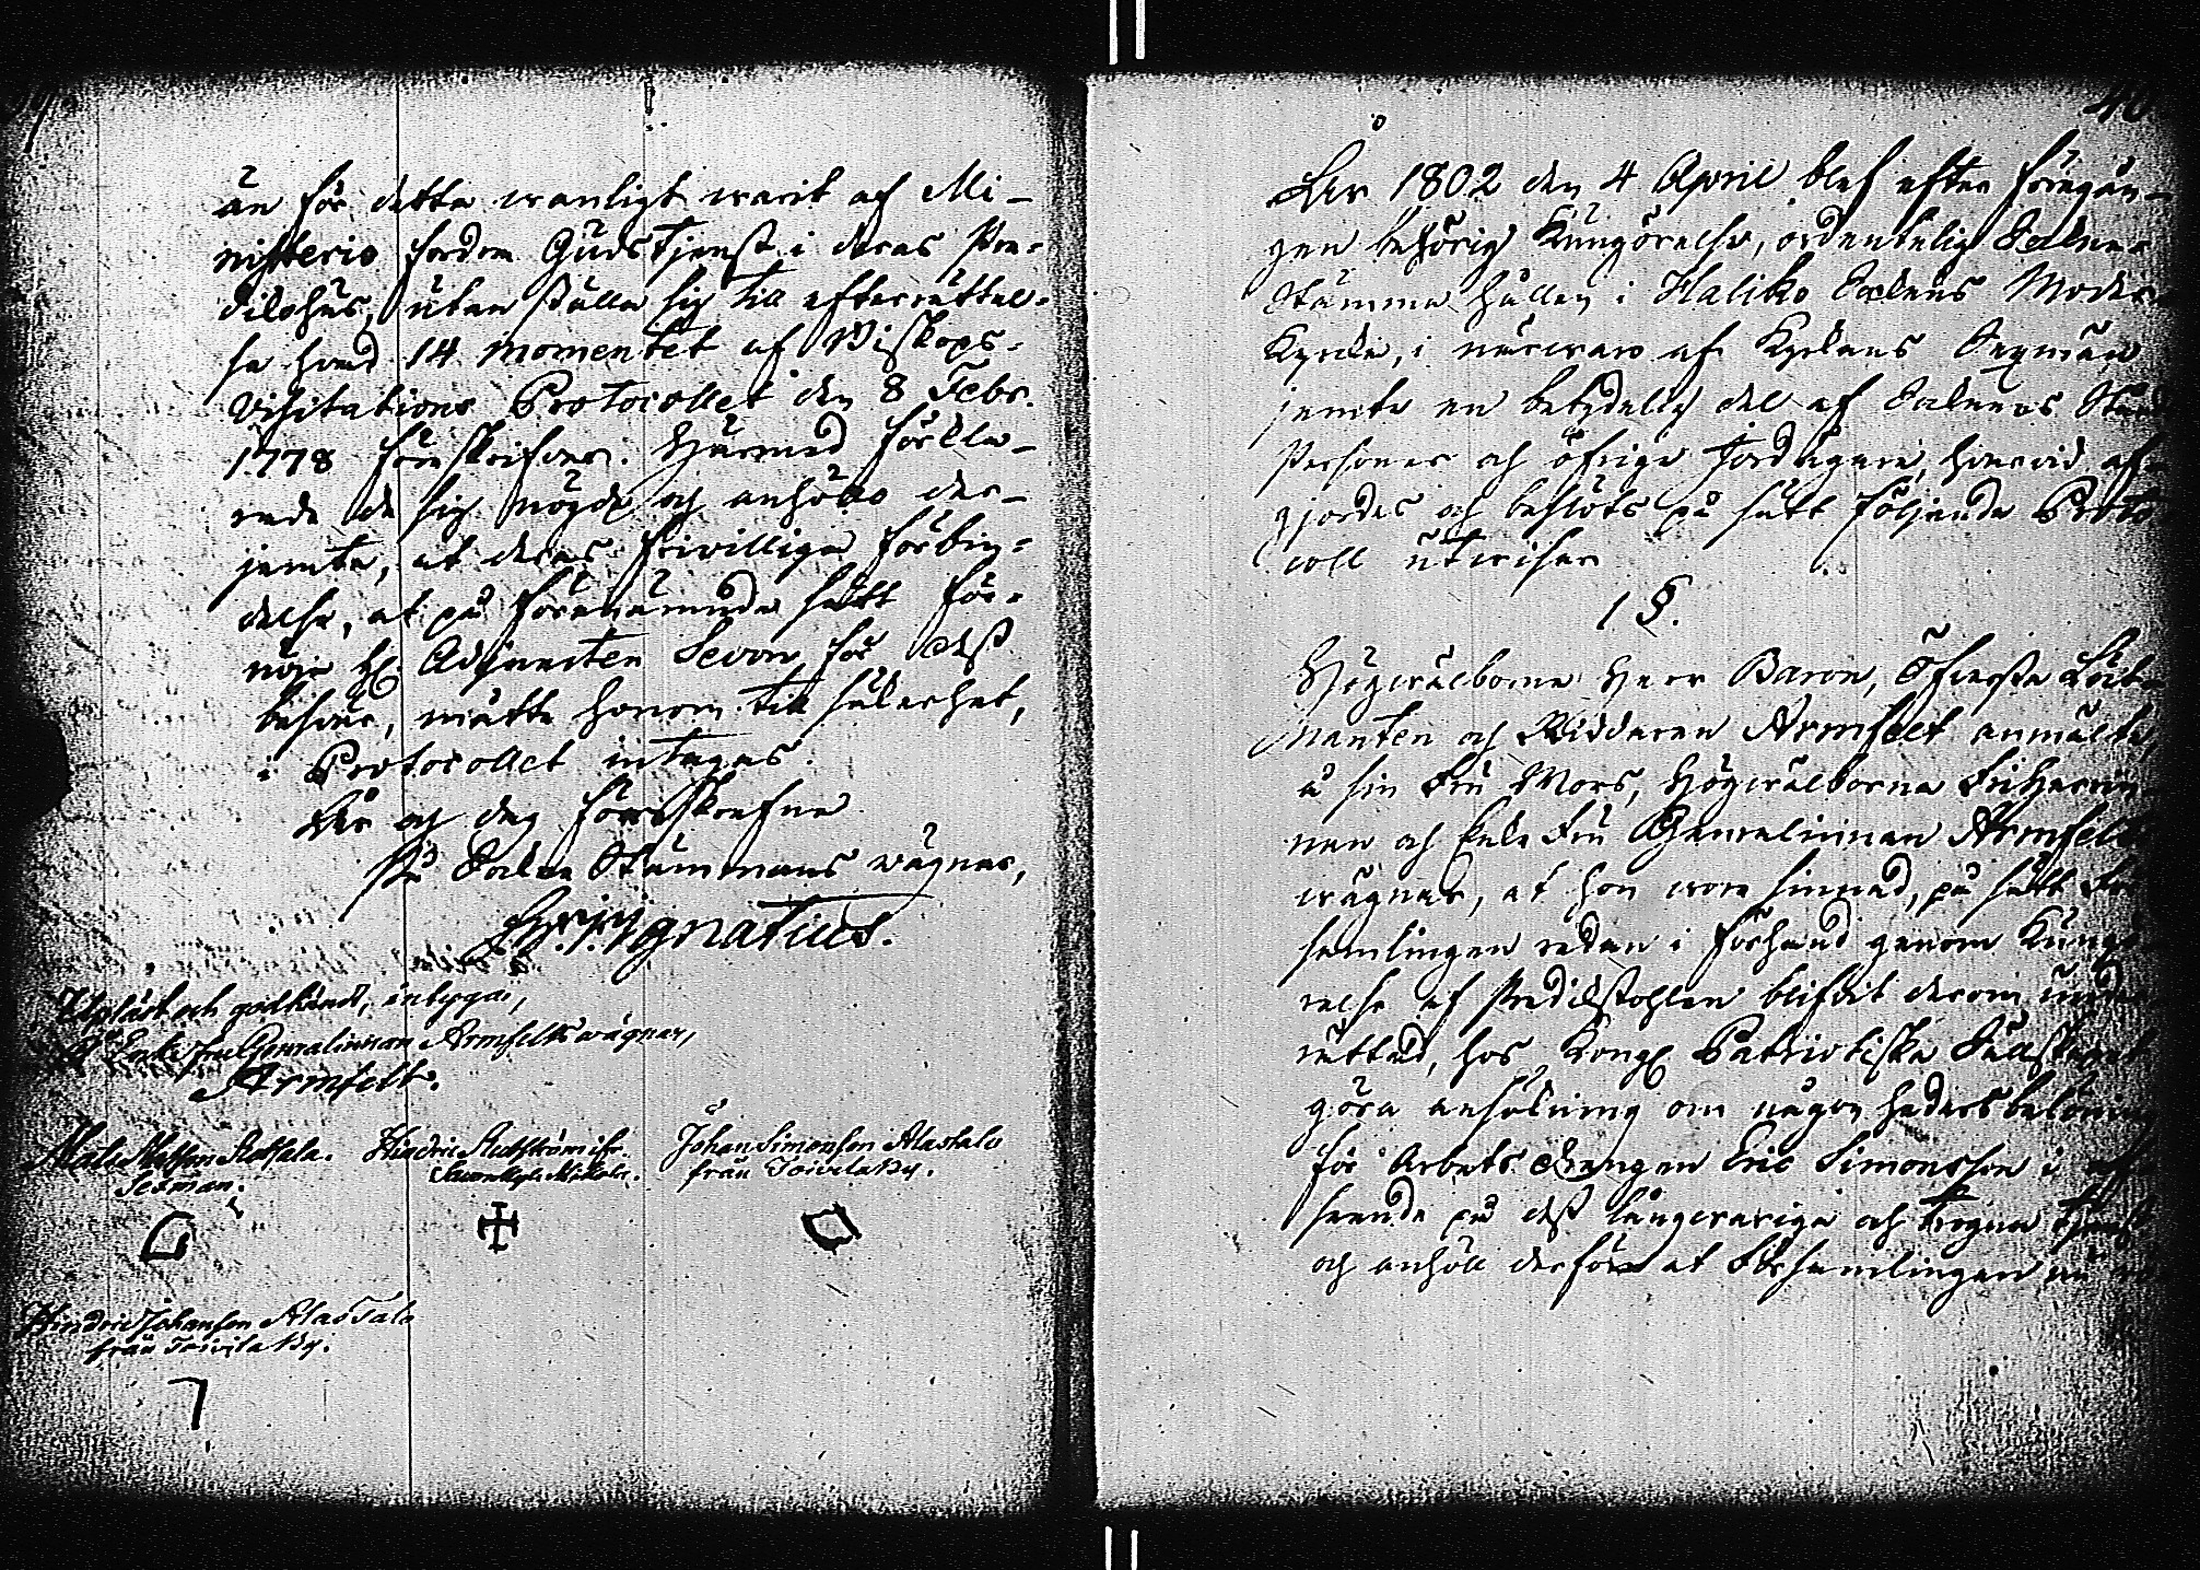 än för detta wanligt warit af Mi-
nisterio fordra Gudstjenst i deras Pre-
dikohus, utan ställa sig till efterrättel-
se hwad 14 momentet af Biskops-
Visitations Protocollet den 8 Febr.
1778 föreskrifver. Härmed förkla-
rade de sig nögde och anhöllo der-
jemte, at deras frivilliga förbin-
delse, at på förenämnde sätt för-
nöja H. Adjuncten Sevon för dess
besvär, måtte honom till säkerhet,
i Protocollet intagas.
År och dag förrskrefne
På Socken Stämmans wägnar,
Ignatius.
Upläst och godkändt, intyga,
På Enke fru Generalinnan Armfelts wägnar,
Armfelt.
Mats Matsson
Sexman.
Hindric
Johan Simonsson Alastalo
från Toivila By.
Hindric Johansson Alastalo
från Toivila By.
40
År 1802 den 4 April blef efter föregån-
gen behörig Kungörelse, ordentelig Sockne
Stämma hållen i Haliko Sockns Moder
Kyrcka, i närwaro af Kyrckans Sexmän
jemte en betydelig del af Socknens Stånds
Personer och öfrige Jordägare, hwarwid af-
gjordes och beslöts på sätt följande Proto
coll utwisar
1 §.
Högwälborne Herr Baron, Öfwerste Löit
nanten och Riddaren Armfelt anmälte,
å sin Fru Mors, Högwälborna Friherrin
nan och Enke Fru Generalinnan Armfelts
wägnar, at hon wore sinnad, på sätt För
samlingen redan i förhand genom Kungö
relse af Predikstohlen blifvit derom under
rättad, hos Kongl. Patriotiska Sällskapet
göra ansökning om någon hedersbelöning
för Arbets Drengen Eric Simonsson i an
seende på dess långwariga och trogna tjenst
och anhöll derföre at Församlingen nu